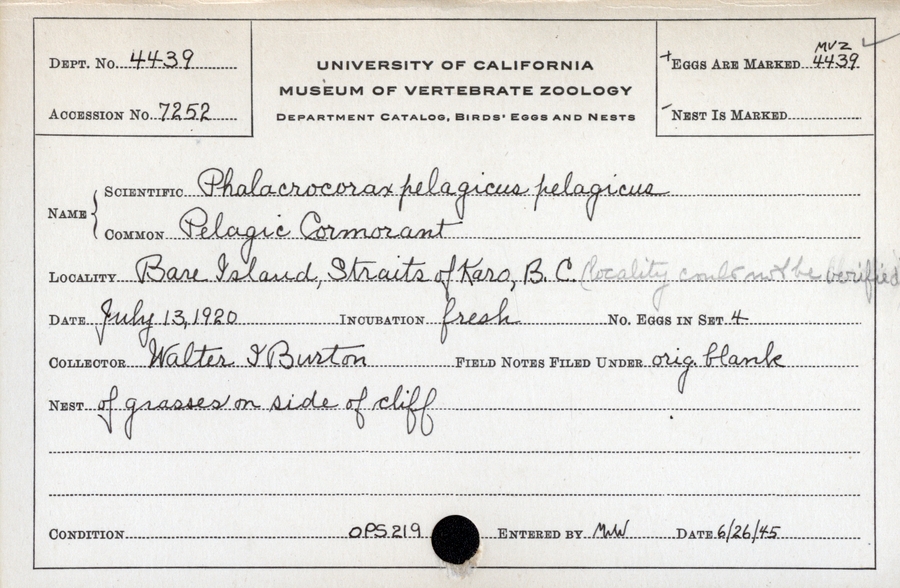 Dept. No. 4439
Accession No. 7252
UNIVERSITY OF CALIFORNIA
MUSEUM OF VERTEBRATE ZOOLOGY
Department Catalog, Birds' Eggs and Nests
+ Eggs Are Marked MVZ 4439 ✓
- Nest Is Marked
Name { Scientific Phalacrocorax pelagicus pelagicus
Common Pelagic Cormorant
Locality Bare Island, Straits of Karo, B.C. (locality could not be verified
Date July 13, 1920 Incubation fresh No. Eggs in Set 4
Collector Walter I Burton Field Notes Filed Under orig. blank
Nest of grasses on side of cliff
Condition OPS219 Entered by MW Date 6/26/45